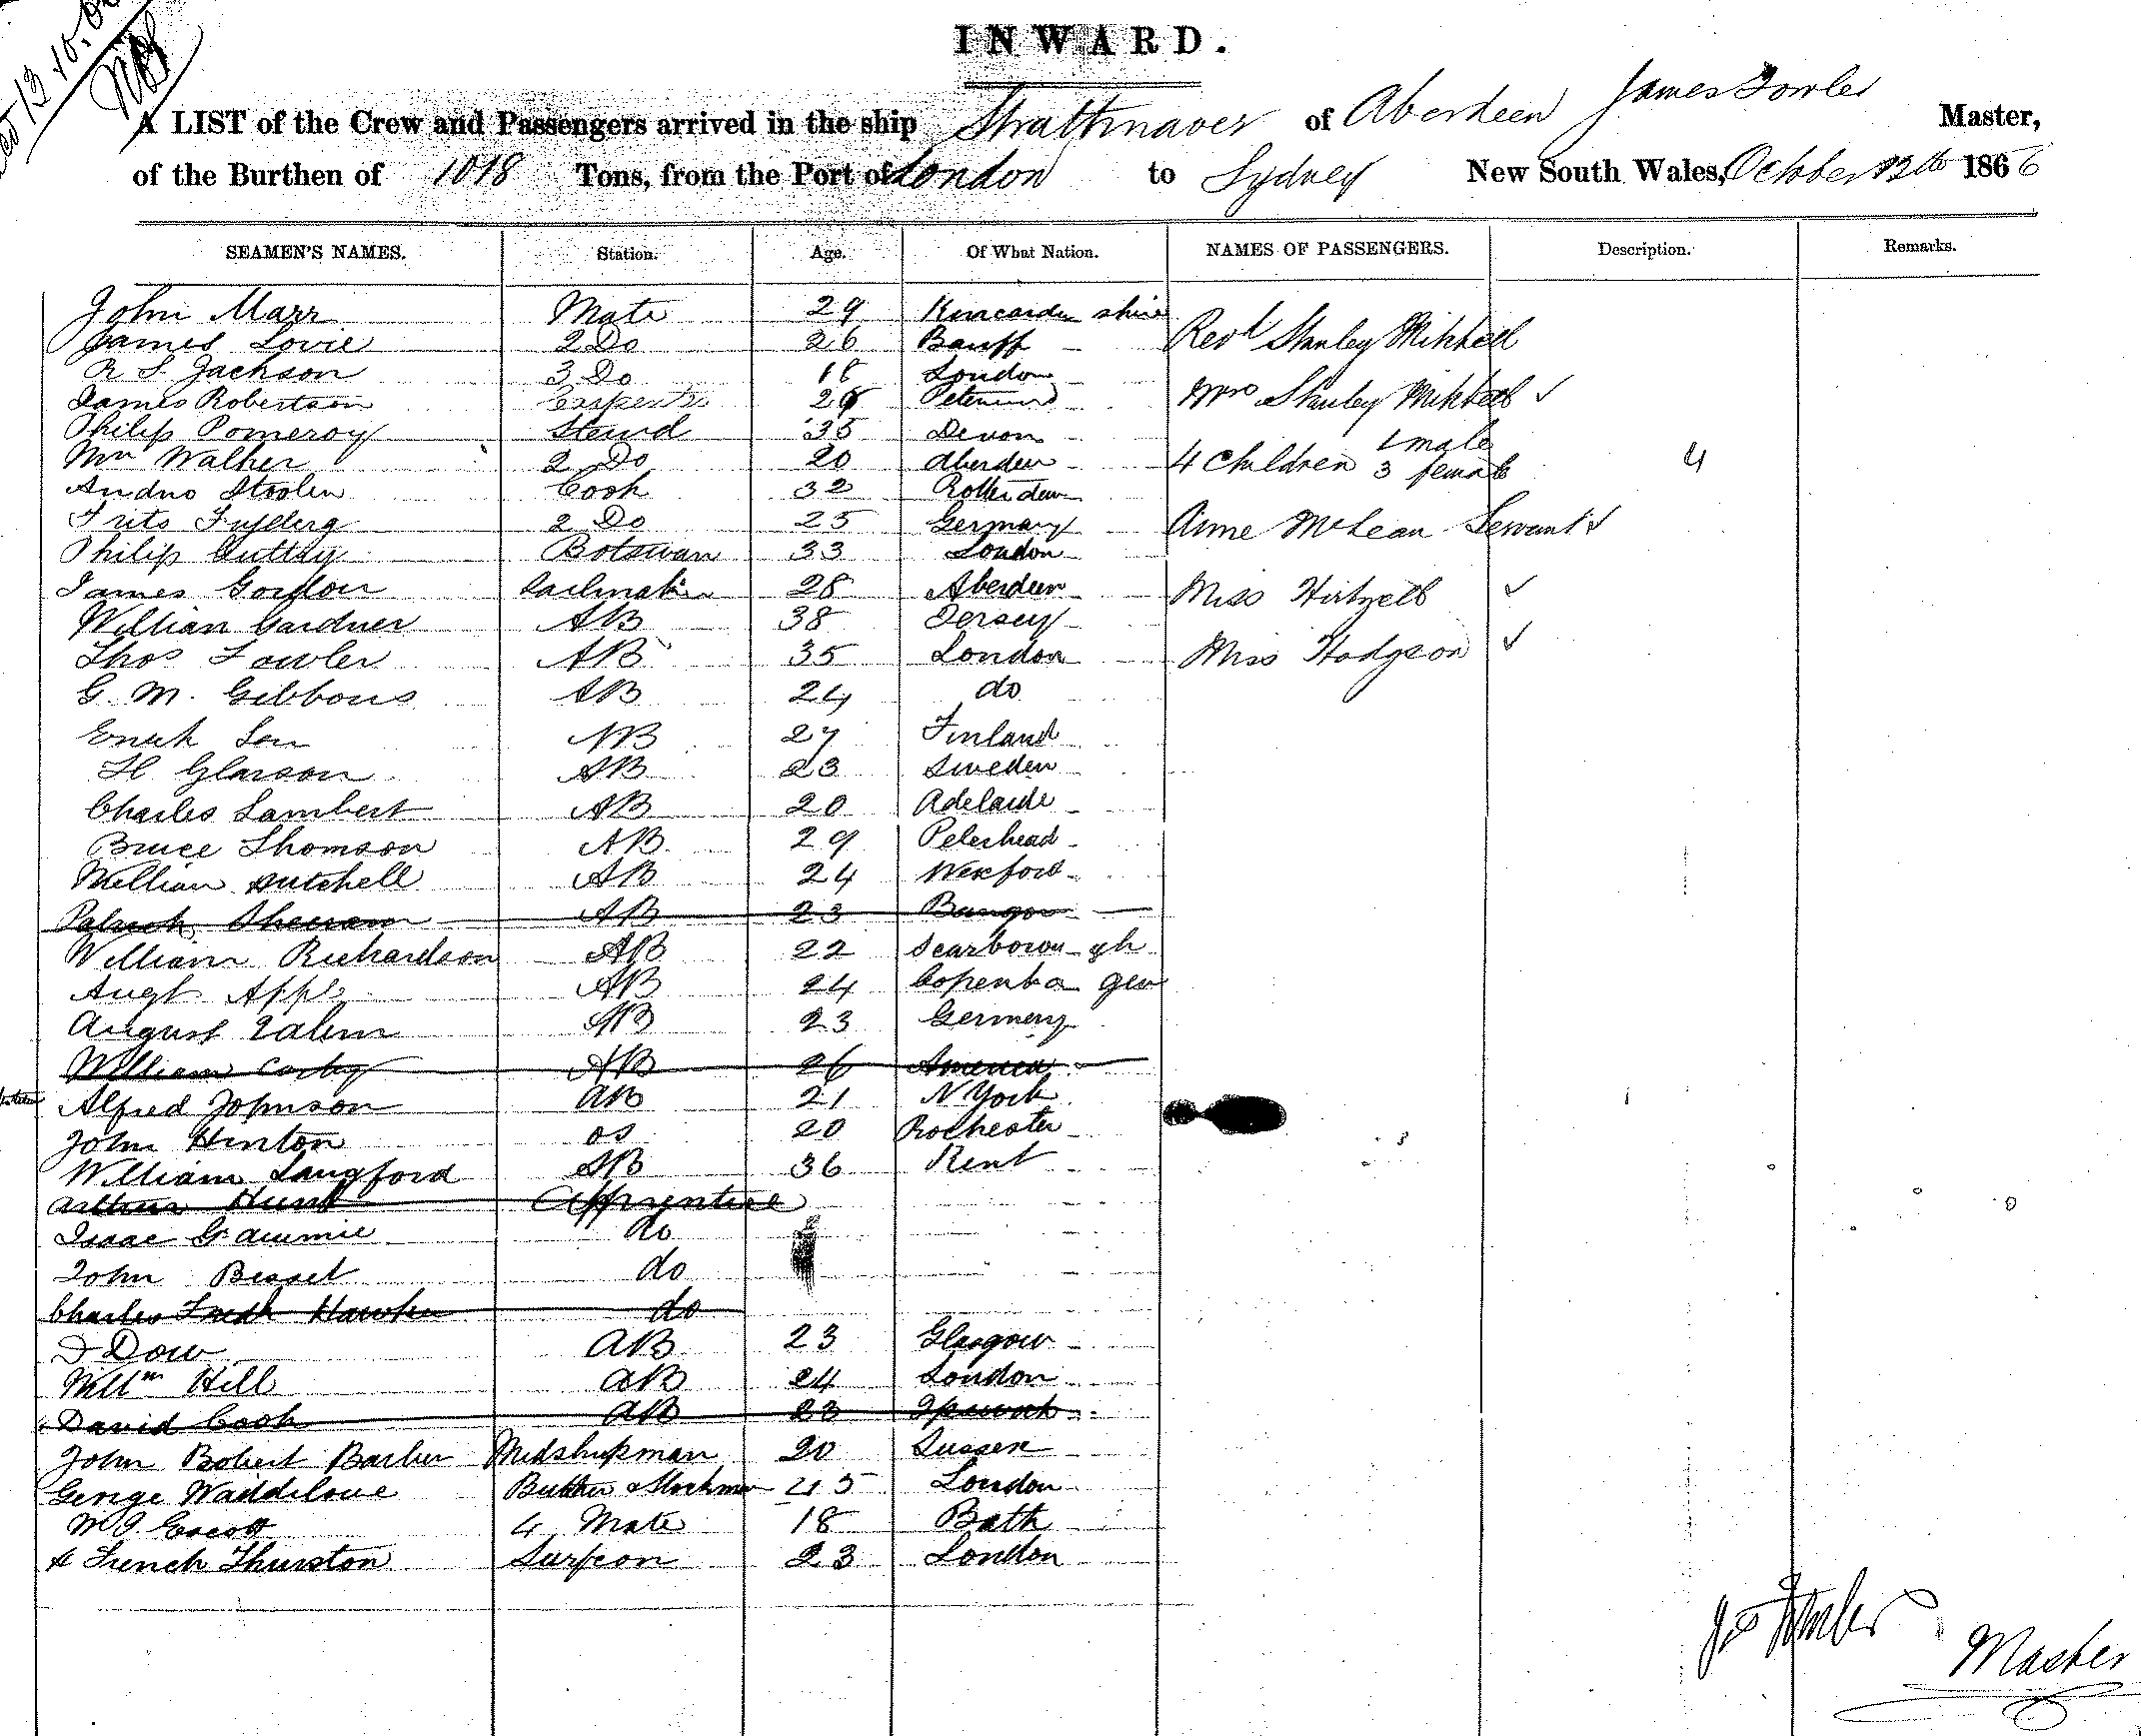 INWARD.
A LIST of the Crew and Passengers arrived in the ship Strathnaver of Aberdeen James Fowler Master,
of the Burthen of 1018 Tons, from the Port of London to Sydney New South Wales, October 12th 1866
SEAMEN'S NAMES. Station. Age. Of What Nation. NAMES OF PASSENGERS. Description. Remarks.
John Marr Mate 29 Kincardin shire
James Lovie 2 Do 26 Banff Revd Stanley Mitchell
R S Jackson 3 Do 18 London
James Robertson Carpenter 26 Mrs Stanley Mitchell ✓
Philip Pomeroy Stewd 35 Devon 1 male
Wm Walker 2 Do 20 Aberdeen 4 Children 3 female 4
Cook 32 Rotterdam
Frits 2 Do 25 Germany Anne McLean Servant ✓
Philip Botswan 33 London
James Gordon Sailmaker 28 Aberdeen Miss ✓
William Gardner AB 38 Jersey
Thos Fowler AB 35 London Miss Hodgson ✓
G. M. Gibbons AB 24 do
AB 27 Finland
H AB 23 Sweden
Charles Lambert AB 20 Adelaide
Bruce Thomson AB 29 Peterhead
William Mitchell AB 24 Wexford
AB 23
William Richardson AB 22 Scarborou gh
Augt AB 24 Copenha gen
August AB 23 Germeny
William AB 26 America
Alfred Johnson AB 21 N York
John Hinton OS 20 Rochester
William Langford AB 36 Kent
Arthur Hunt Apprentice
Isaac Gammie do
John Bisset do
Charles do
Dow AB 23 Glasgow
Willm Hill AB 24 London
David Cook AB 23 Ipswich
John Robert Barber Midshipman 20 Sussex
George Waddilove London
Escott 4 Mate 18 Bath
French Thurston Surgeon 23 London
Jas Fowler
Master